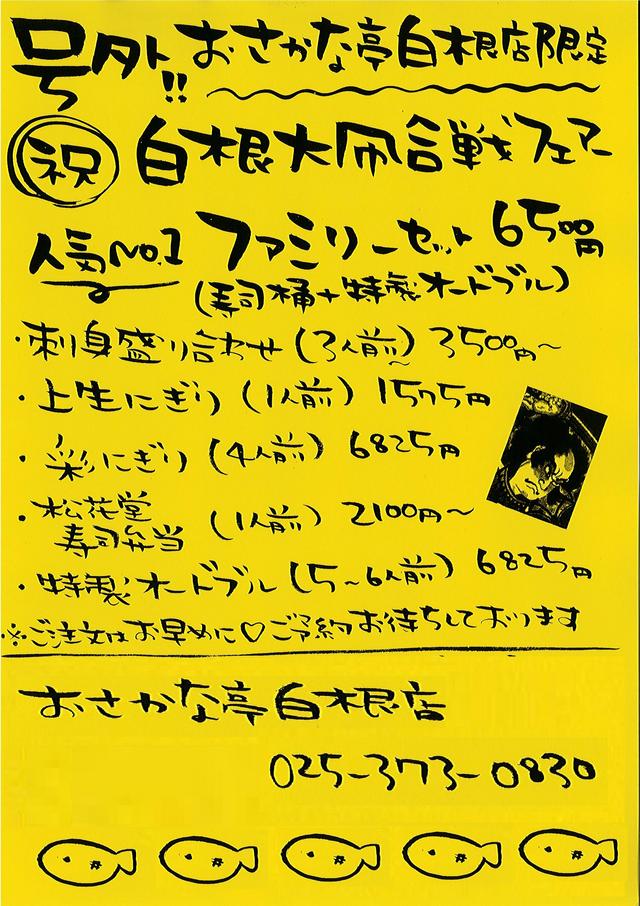 号外!! おさかな亭白根店限定
祝 白根大凧合戦フェアー
人気No.1 ファミリーセット 6500円
(寿司桶+特製オードブル)
・刺身盛り合わせ (3人前〜) 3500円〜
・上生にぎり (1人前) 1575円
・彩にぎり (4人前) 6825円
・松花堂
寿司弁当 (1人前) 2100円〜
・特製オードブル (5〜6人前) 6825円
※ご注文はお早めに♡ご予約お待ちしております
おさかな亭白根店
025-373-0830